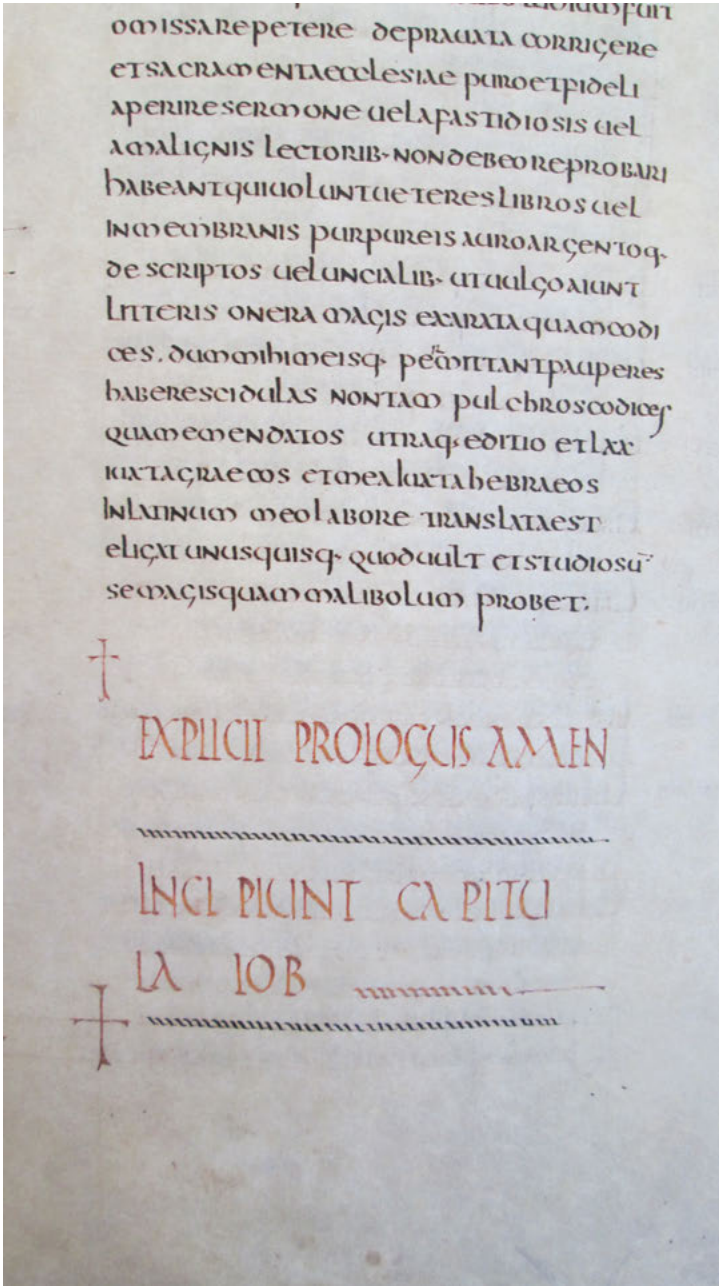 omissa repetere deprauata corrigere
et sacramenta ecclesiae puro et fideli
aperire sermone uel a fastidiosis uel
a malignis lectorib· non debeo reprobari
habeant qui uolunt ueteres libros uel
in membranis purpureis auro argentoq·
de scriptos uel uncialib· ut uulgo aiunt
litteris onera magis exarata quam codi
ces. dum mihi meisq· permittant pauperes
habere scidulas non tam pulchros codices
quam emendatos utraq· editio et lxx
iuxta graecos et mea iuxta hebraeos
in latinum meo labore translata est
eligat unusquisq· quod uult et studiosū
se magis quam malibolum probet:
† EXPLICIT PROLOGUS AMEN
INCIPIUNT CAPITU
LA IOB